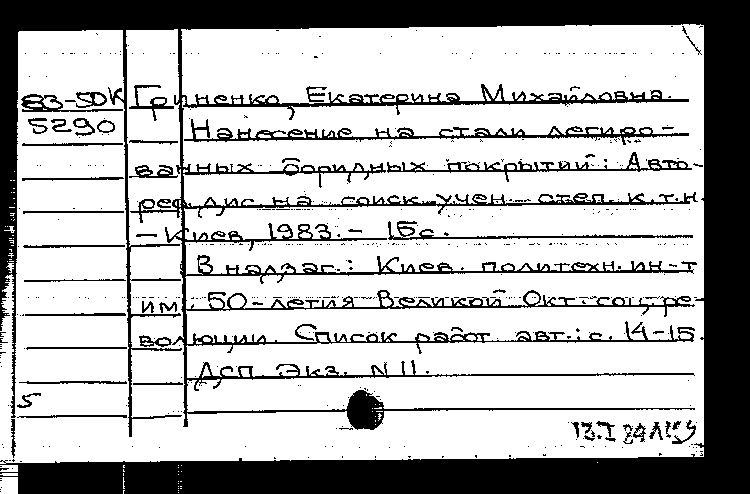 83-50К Гриненко, Екатерина Михайловна.
5290 Нанесение на стали легиро-
ванных боридных покрытий: Авто-
реф. дис. на соиск. учен. степ. к.т.н.
– Киев, 1983. – 15с.
В надзаг.: Киев. политехн. ин-т
им. 50-летия Великой Окт. соц. ре-
волюции. Список работ авт.: с. 14-15.
Дсп. Экз. N 11.
5
13.I 84